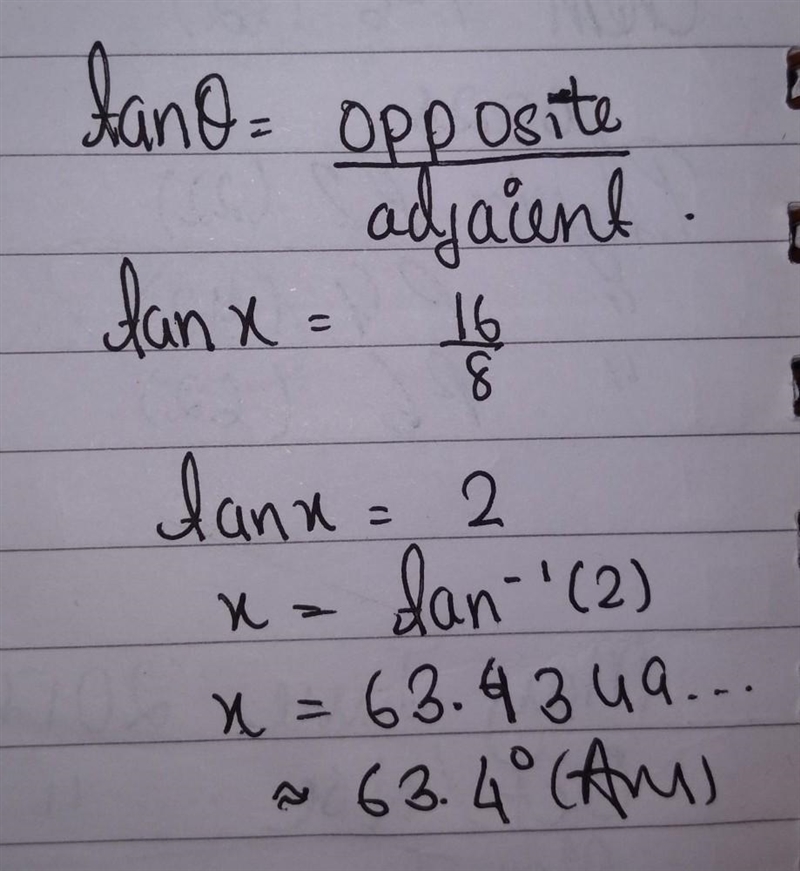 tanθ = opposite
adjacent .
tan x = 16
8
tan x = 2
x = tan⁻¹(2)
x = 63.4349...
≈ 63.4° (Ans)